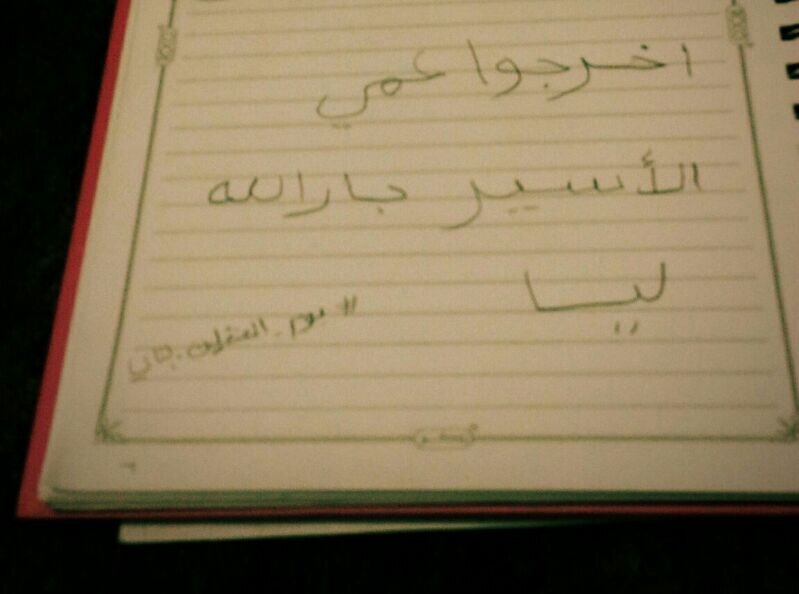 اخرجوا عمي
الأسير جارالله
ليبيا
# يوم_المعتقلين